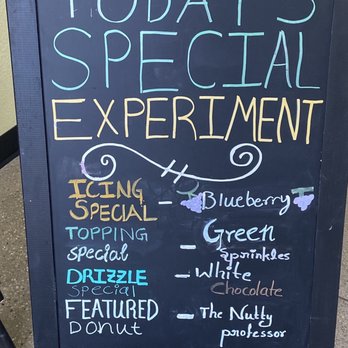 TODAY'S
SPECIAL
EXPERIMENT
ICING SPECIAL - Blueberry
TOPPING special - Green sprinkles
DRIZZLE special - White chocolate
FEATURED Donut - The Nutty professor